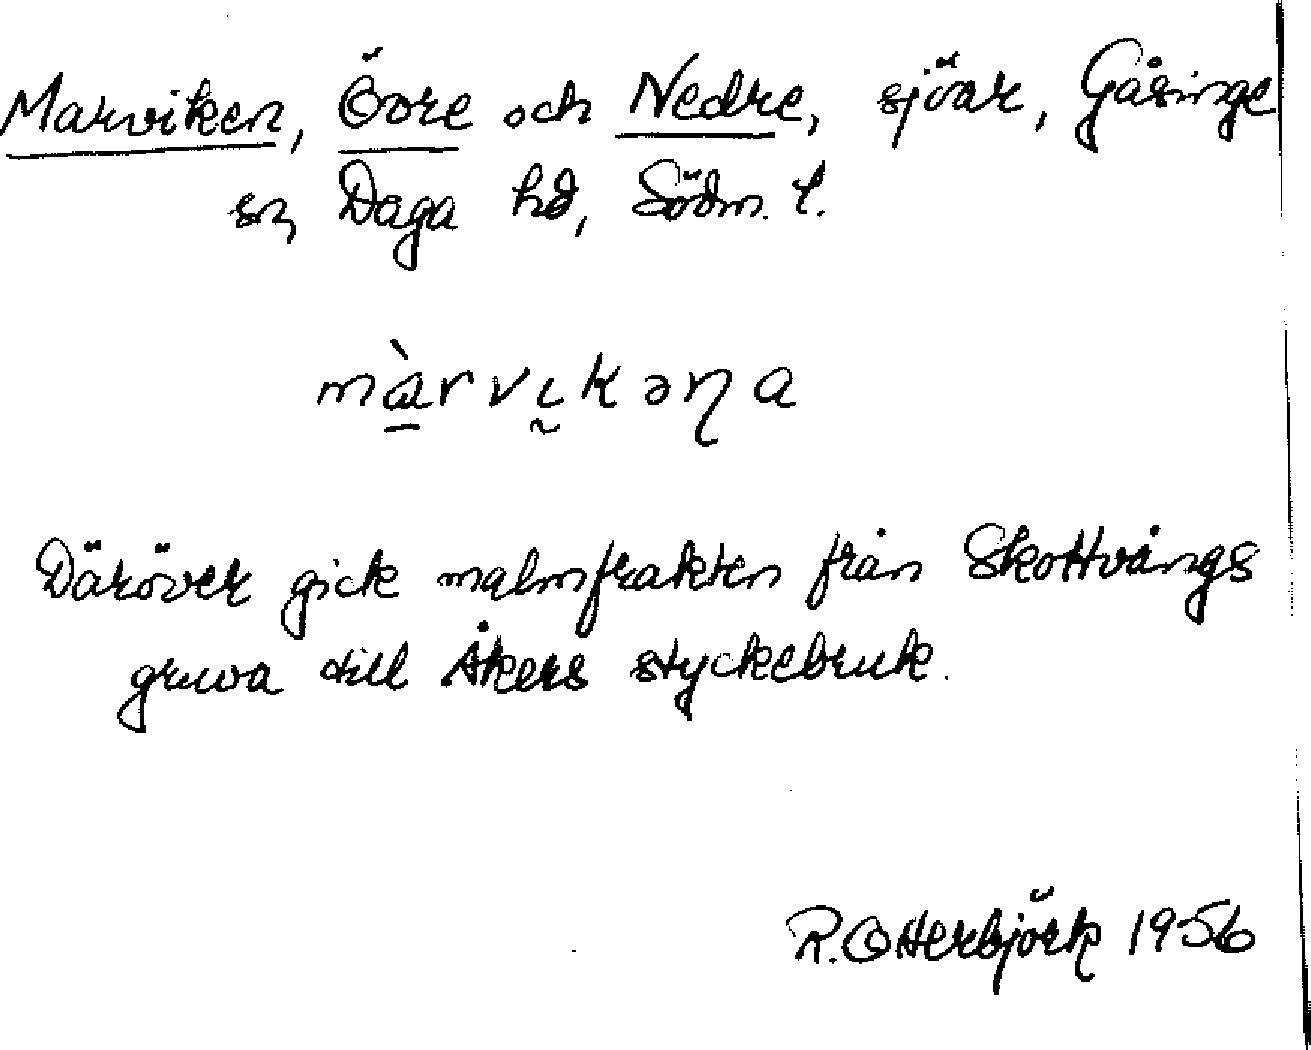 Marviken, Övre och Nedre, sjöar, Gåsinge
sn, Daga hd, Södm. l.
màrvḭkəƞa
Däröver gick malmfrakten från Skottvångs
gruva till Åkers styckebruk.
R. Otterbjörk 1956